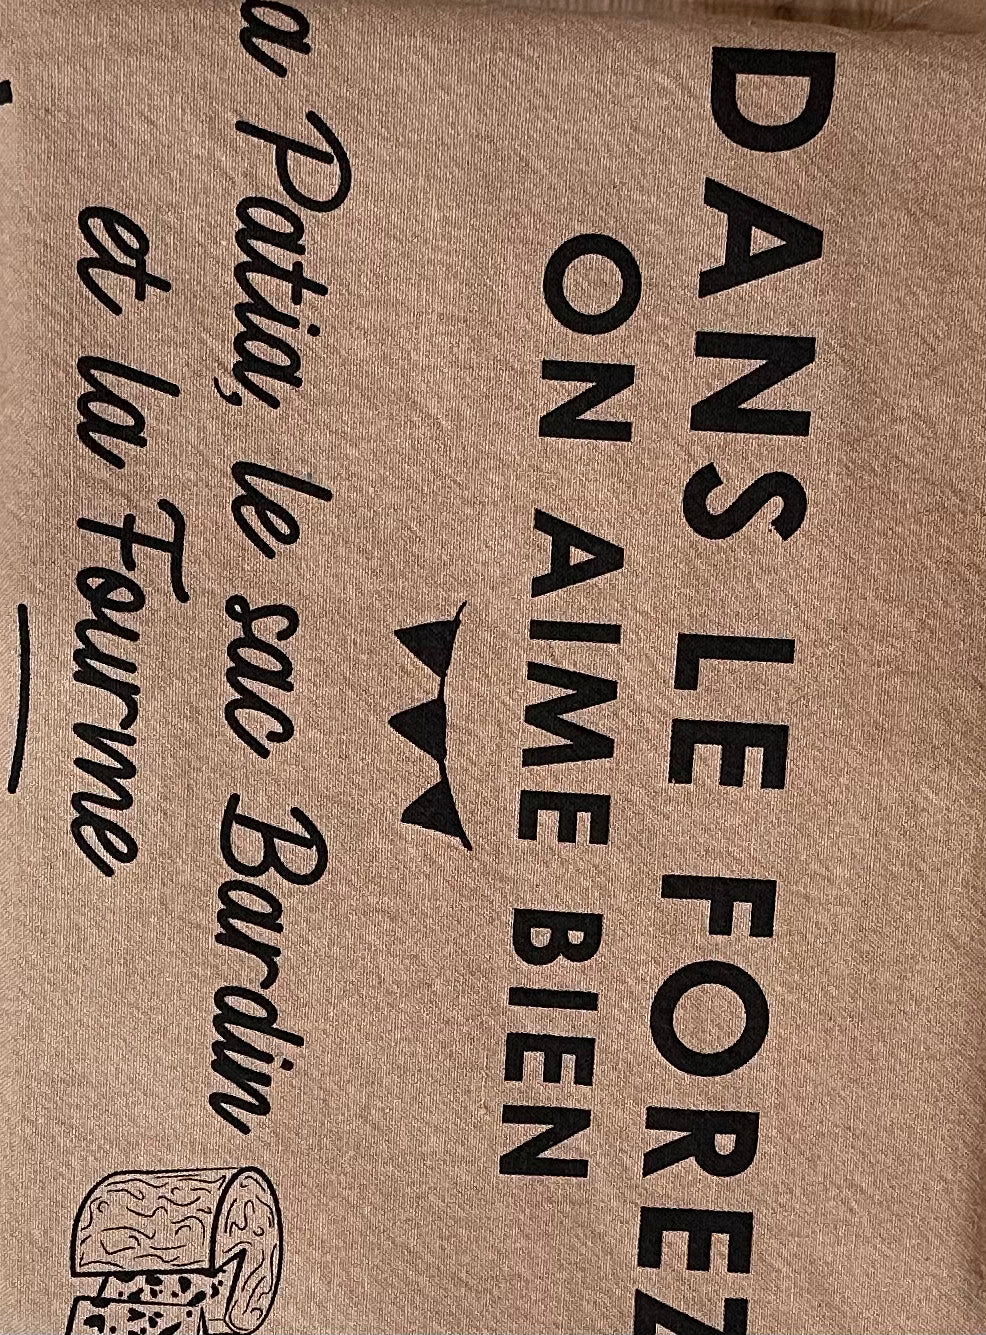 DANS LE FOREZ
ON AIME BIEN
a Patia, le sac Bardin
et la Fourme